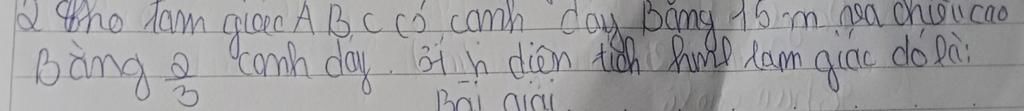 2 Cho tam giác A B, C có cạnh đáy Bằng 15 m và chiều cao
Bằng 2/3 cạnh đáy. Tính diện tích hình tam giác đó là:
Bài giải